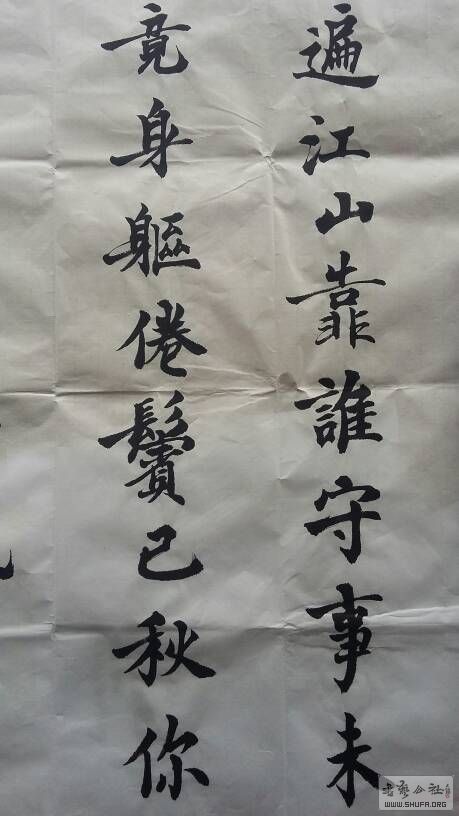 遍江山靠誰守事未
竟身軀倦鬢已秋你
WWW.SHUFA.ORG